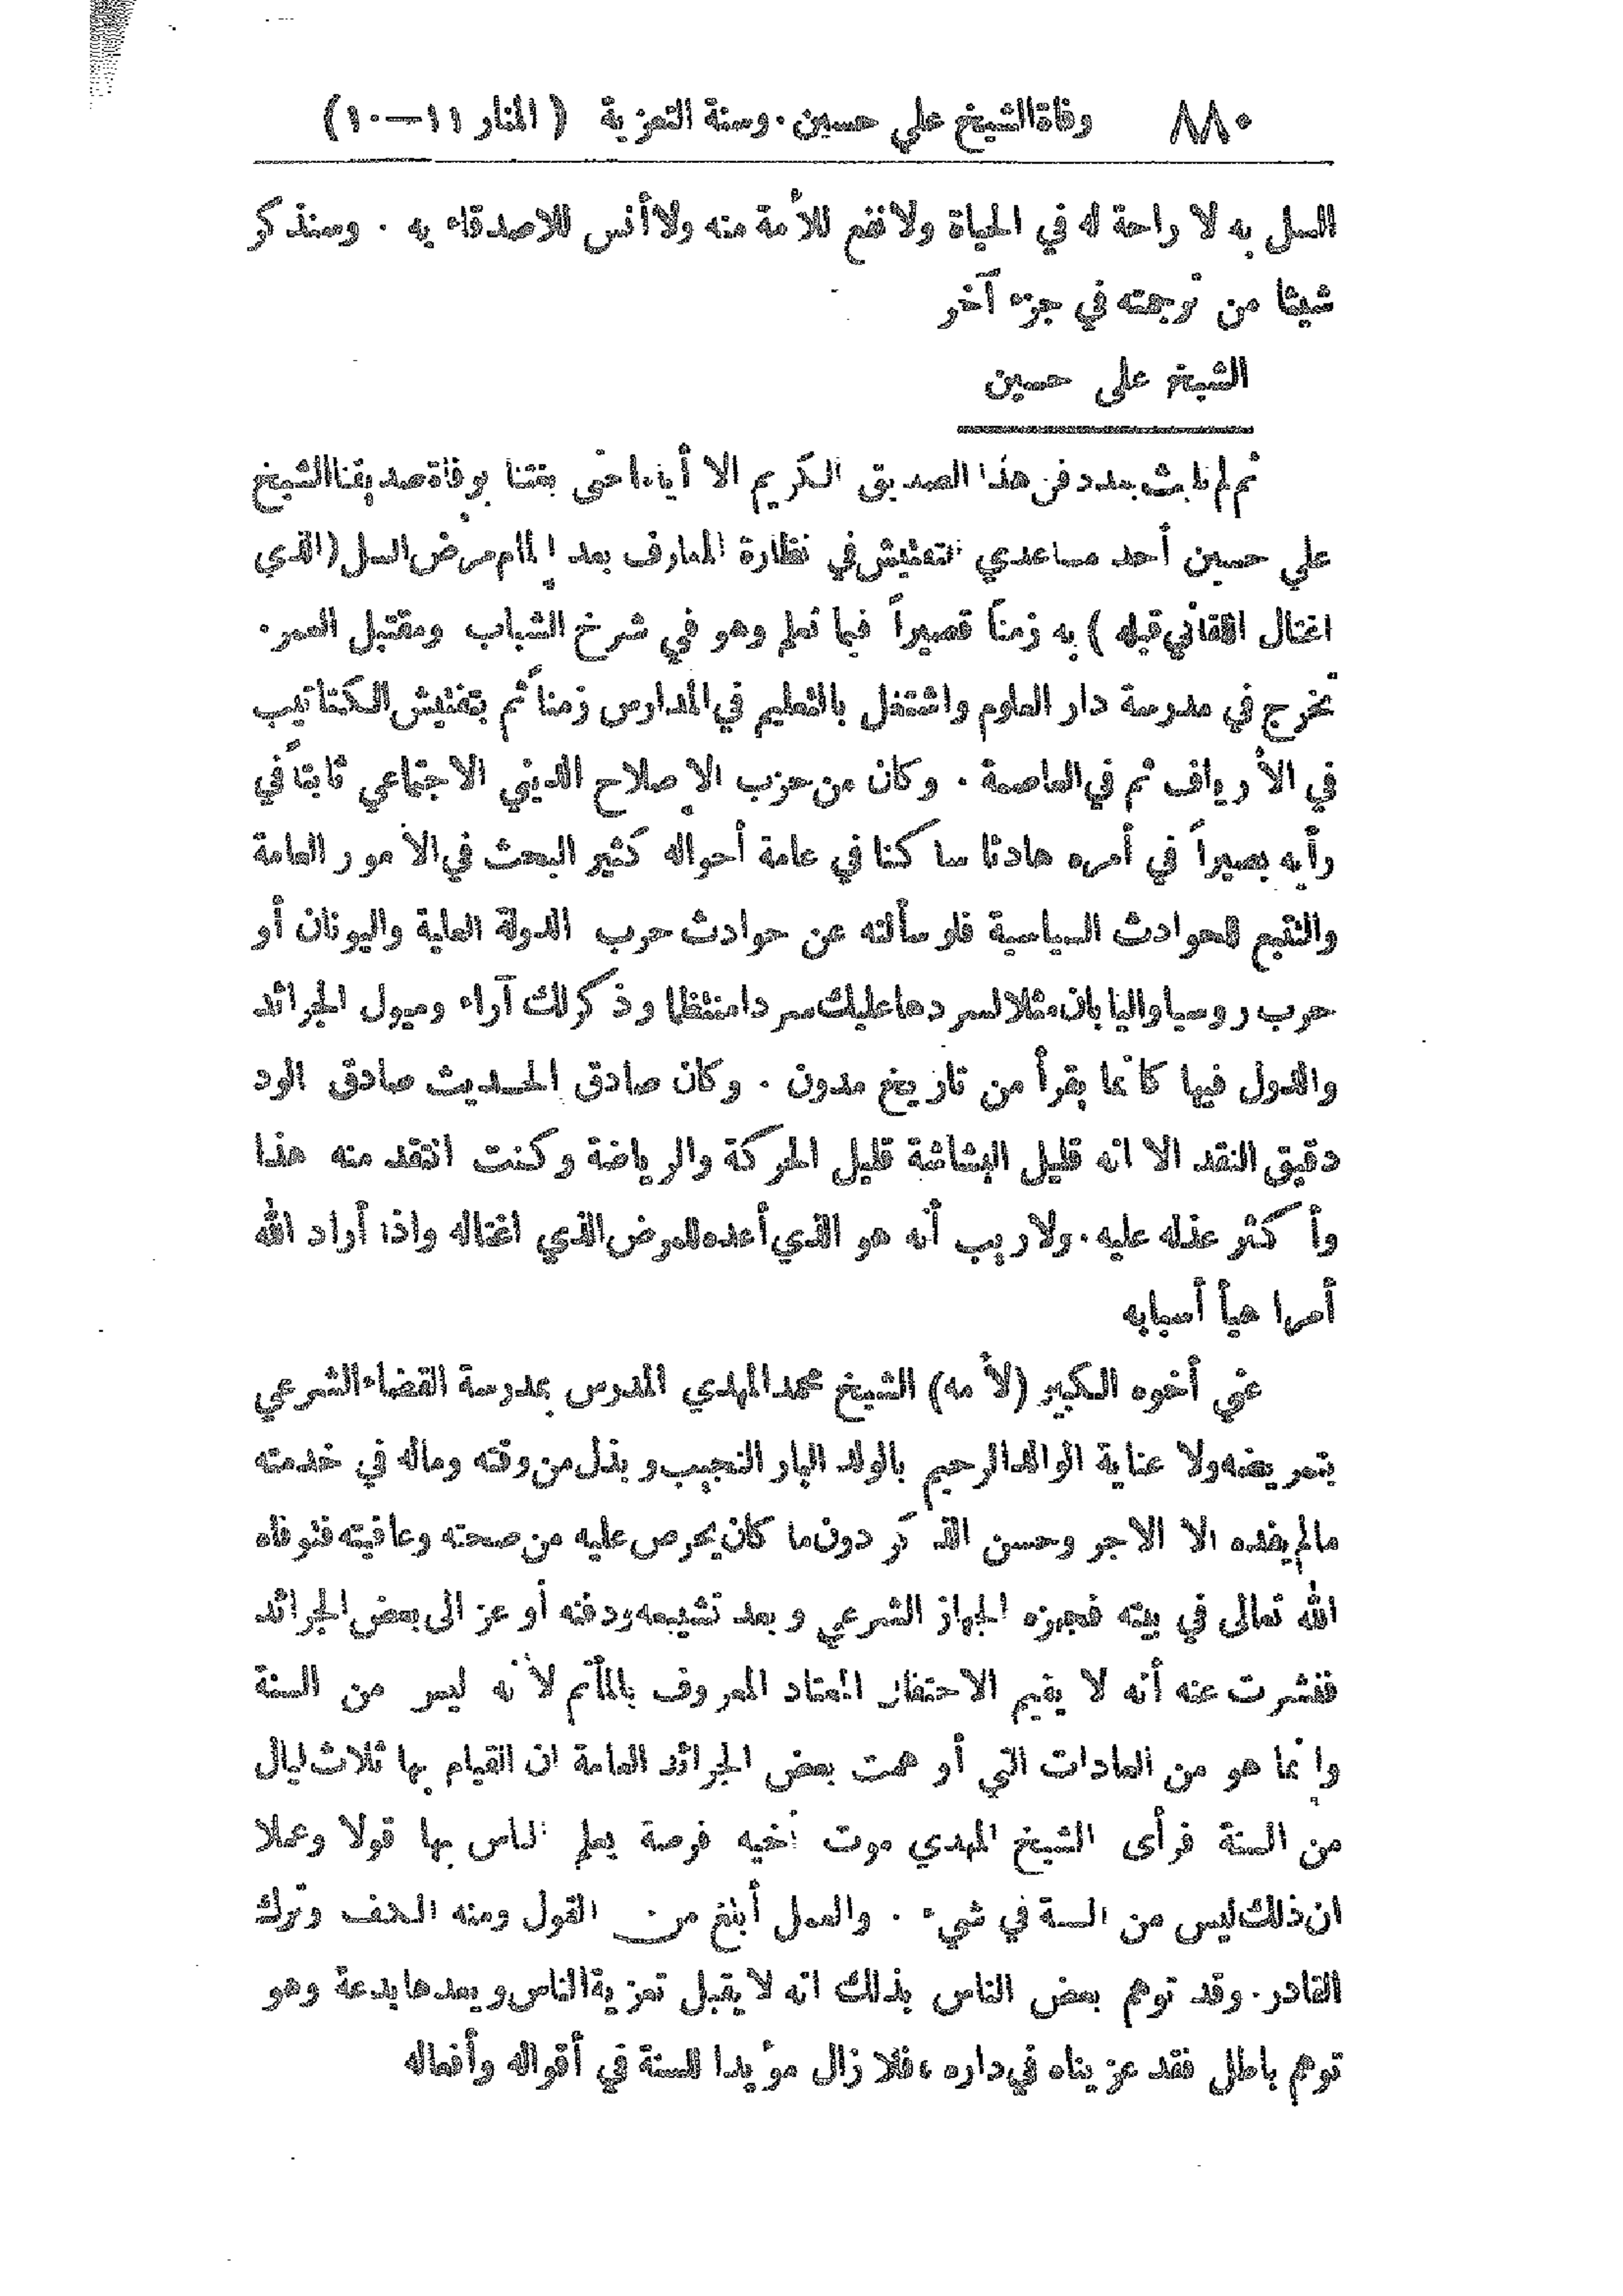 ٨٨٠ وفاة الشيخ علي حسين . وسنة التعزية ( المنار ١١—١٠)
السل به لا راحة له في الحياة ولا نفع للأمة منه ولا أنس للاصدقاء به . وسنذكر
شيئا من ترجمته في جزء آخر
الشيخ على حسين
ثم لم نلبث بعد دفن هذا الصديق الكريم الا أياما حتى بغتنا بوفاة صديقنا الشيخ
علي حسين أحد مساعدي التفتيش في نظارة المعارف بعد إلمام مرض السل (الذي
اغتال اللقاني قبله ) به زمناً قصيراً فيما نعلم وهو في شرخ الشباب ومقتبل العمر .
تخرج في مدرسة دار العلوم واشتغل بالتعليم في المدارس زمناً ثم بتفتيش الكتاتيب
في الأرياف ثم في العاصمة . وكان من حزب الإصلاح الديني الاجتماعي ثابتاً في
رأيه بصيراً في أمره هادئا ساكنا في عامة أحواله كثير البحث في الامور العامة
والتتبع للحوادث السياسية فلو سألته عن حوادث حرب الدولة العلية واليونان أو
حرب روسيا واليابان مثلا لسردها عليك سردا منتظما وذكر لك آراء وميول الجرائد
والدول فيها كأنما يقرأ من تاريخ مدون . وكان صادق الحديث صادق الود
دقيق النقد الا انه قليل البشاشة قليل الحركة والرياضة وكنت انتقد منه هذا
وأكثر عذله عليه . ولا ريب أنه هو الذي أعده للمرض الذي اغتاله واذا أراد الله
أمرا هيأ أسبابه
عني أخوه الكبير (لأمه) الشيخ محمد المهدي المدرس بمدرسة القضاء الشرعي
بتمريضه ولا عناية الوالد الرحيم بالولد البار النجيب وبذل من وقته وماله في خدمته
مالم يفده الا الاجر وحسن الذكر دون ما كان يحرص عليه من صحته وعافيته فتوفاه
الله تعالى في بيته فجهزه الجهاز الشرعي وبعد تشييعه ودفنه أوعز الى بعض الجرائد
فنشرت عنه أنه لا يقيم الاحتفال المعتاد المعروف بالمأتم لأنه ليس من السنة
وإنما هو من العادات التي أوهمت بعض الجرائد العامة ان القيام بها ثلاث ليال
من السنة فرأى الشيخ المهدي موت أخيه فرصة يعلم الناس بها قولا وعملا
ان ذلك ليس من السنة في شيء . والعمل أبلغ من القول ومنه الكف وترك
القادر . وقد توهم بعض الناس بذلك انه لا يقبل تعزية الناس ويعدها بدعة وهو
توهم باطل فقد عزيناه في داره ، فلا زال مؤيدا للسنة في أقواله وأفعاله